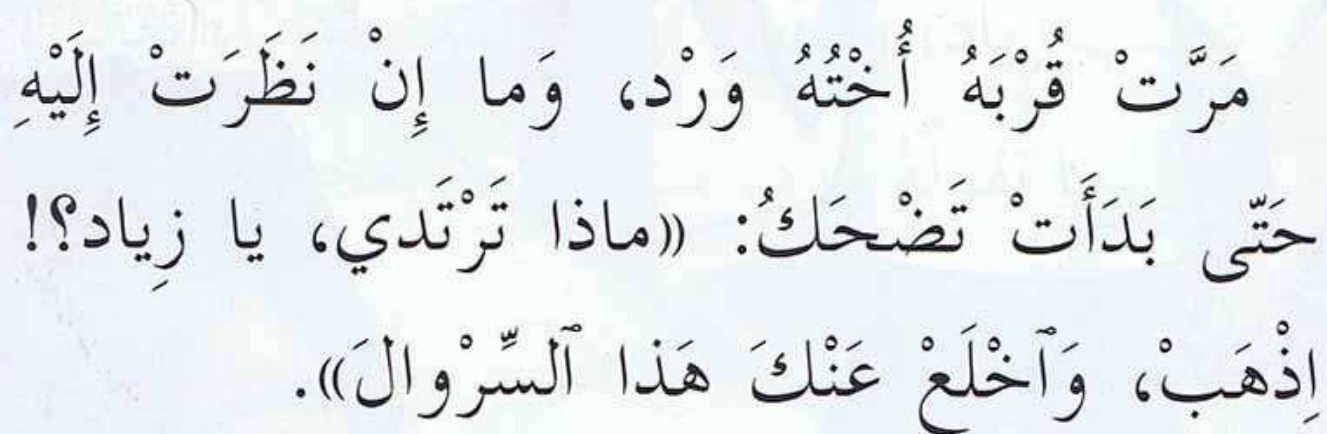 مَرَّتْ قُرْبَهُ أُخْتُهُ وَرْد، وَما إِنْ نَظَرَتْ إِلَيْهِ
حَتّى بَدَأَتْ تَضْحَكُ: «ماذا تَرْتَدي، يا زِياد؟!
اِذْهَبْ، وَٱخْلَعْ عَنْكَ هَذا ٱلسِّرْوالَ».